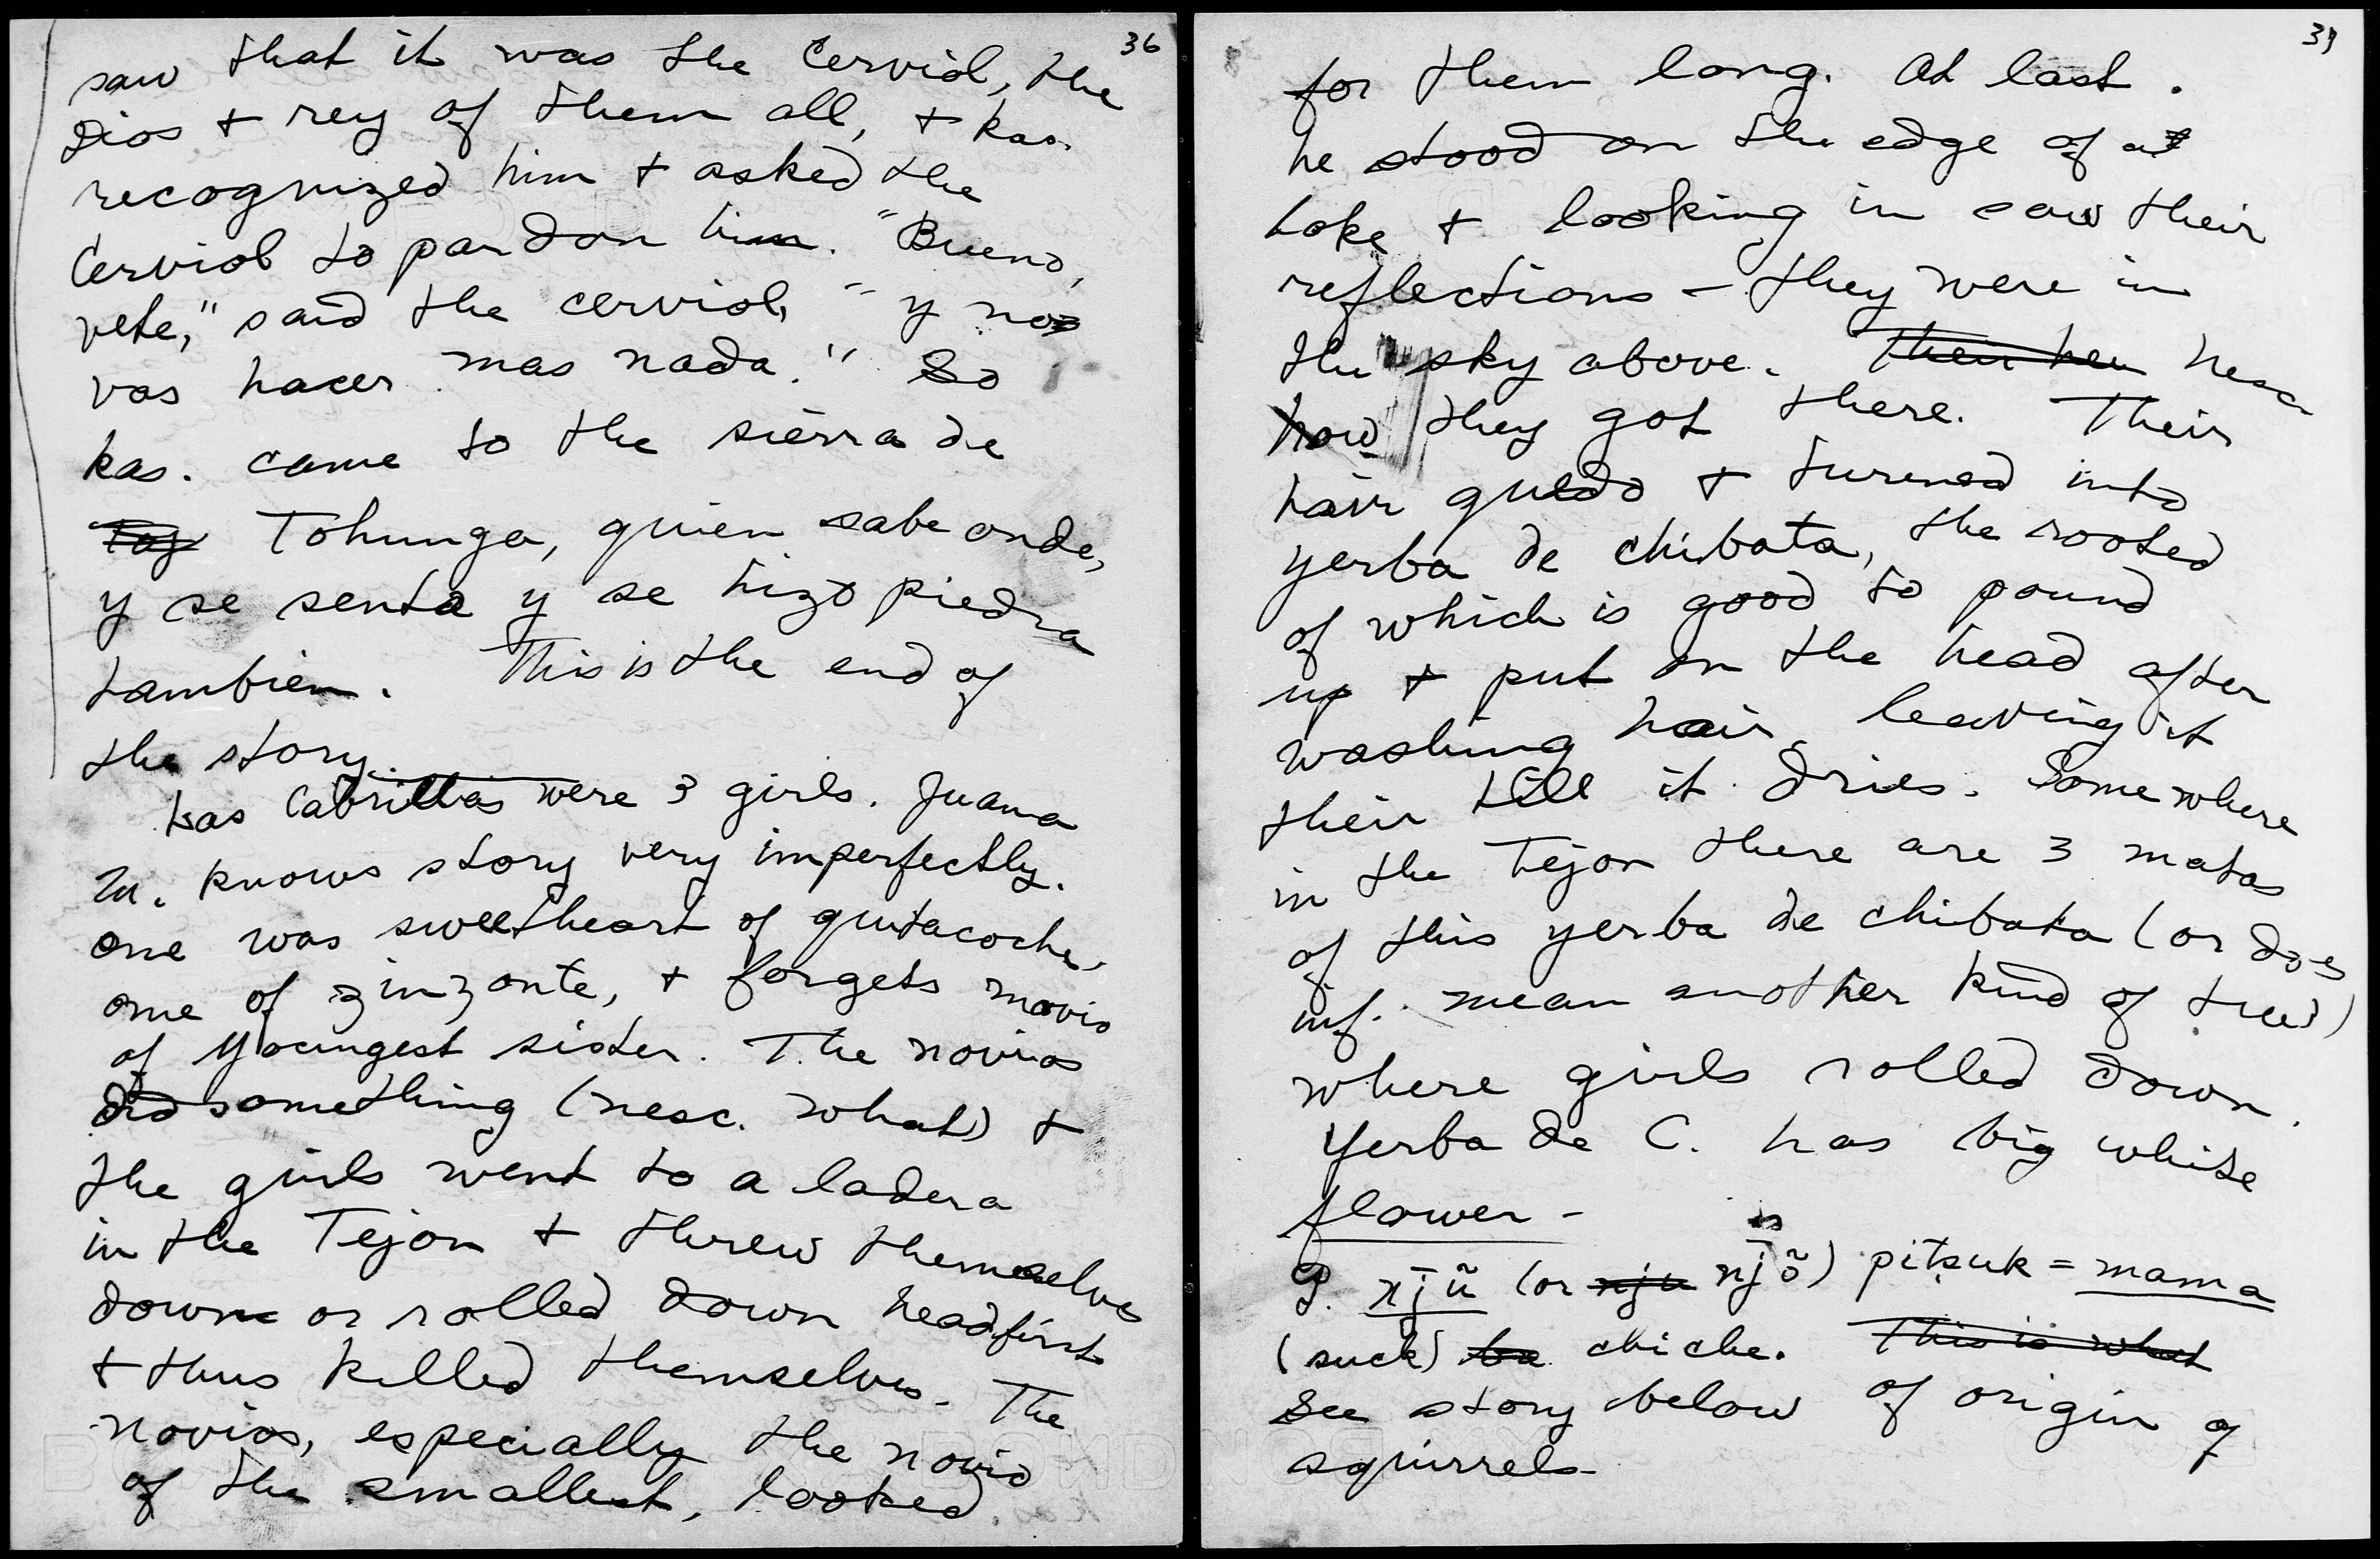 36
saw that it was the Cerviol, the
dios + rey of them all, + kas.
recognized him + asked the
Cerviol to pardon him. "Bueno,
vete," said the cerviol, "y no
vas hacer mas nada." So
kas. came to the sierra de
Tohunga, quien sabe onde,
y se senta y se hizo piedra
tambien. This is the end of
the story.
Las Cabrillas were 3 girls. Juana
M. knows story very imperfectly.
One was sweetheart of quitacoche,
one of zinzonte, + forgets novio
of youngest sister. The novios
did something (nesc. what) +
the girls went to a ladera
in the Tejon + threw themselves
down or rolled down headfirst
+ thus killed themselves. The
novios, especially the novio
of the smallest, looked
37
for them long. At last.
he stood on the edge of a
lake + looking in saw their
reflections – they were in
the sky above. Their her nesc
how they got there. Their
hair quedo + turened into
yerba de chibata, the rooted
of which is good to pound
up + put on the head after
washing hair, leaving it
their till it dries. Somewhere
in the Tejon there are 3 matas
of this yerba de chibata (or does
inf. mean another kind of tree?)
where girls rolled down.
Yerba de C. has big white
flower –
is
P. xjũ (or xju njõ) pitsuk = mama
(suck) chiche. This is what
See story below of origin of
squirrels –